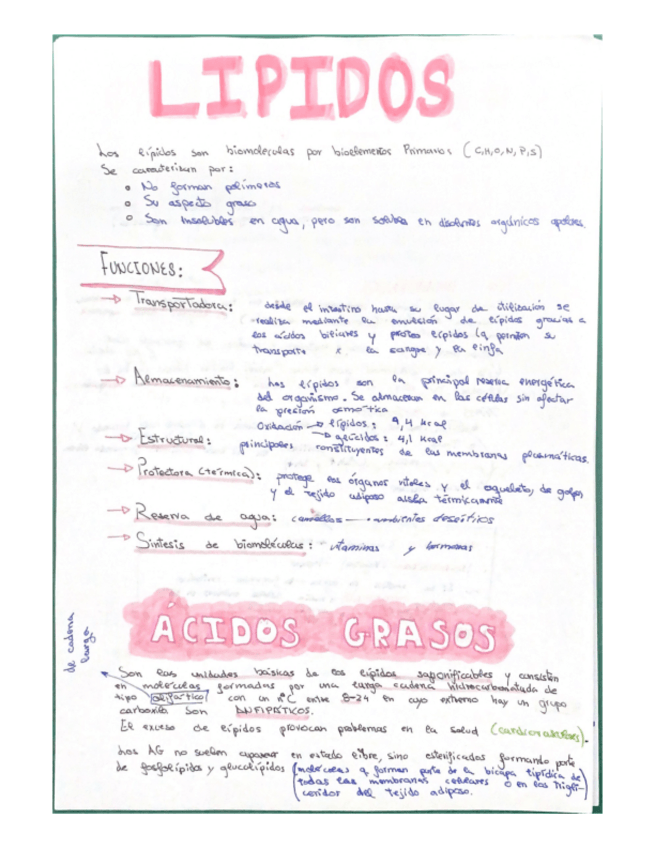 LIPIDOS
Los lípidos son biomoleculas por bioelementos Primarios (C,H,O,N,P,S)
Se caracterizan por:
No forman polímeros
Su aspecto graso
Son insolubles en agua, pero son solubles en disolventes orgánicos apolares.
FUNCIONES:
Transportadora: desde el intestino hasta su lugar de utilización se
realiza mediante la emulsión de lípidos gracias a
los ácidos biliares y proteo lípidos (q permiten su
transporte x la sangre y la linfa
Almacenamiento: Los lípidos son la principal reserva energética
del organismo. Se almacenan en las células sin afectar
la presión osmótica
Oxidación → lípidos: 9,4 kcal
→ glúcidos: 4,1 kcal
Estructural: principales constituyentes de las membranas plasmáticas.
Protectora (térmica): protege los órganos vitales y el esqueleto, de golpes,
y el tejido adiposo aisla térmicamente
Reserva de agua: camellos → ambientes desérticos
Síntesis de biomoléculas: vitaminas y hormonas
ÁCIDOS GRASOS
de cadena
larga
Son las unidades básicas de los lípidos saponificables y consisten
en moléculas formadas por una larga cadena hidrocarbonada de
tipo alifático con un nºC entre 8-24 en cuyo extremo hay un grupo
carboxilo son ANFIPÁTICOS.
El exceso de lípidos provocan problemas en la salud (cardiovasculares).
Los AG no suelen aparecer en estado libre, sino esterificados formando parte
de fosfolípidos y glucolípidos (moléculas q forman parte de la bicapa lipídica de
todas las membranas celulares o en los Trigli-
céridos del tejido adiposo.